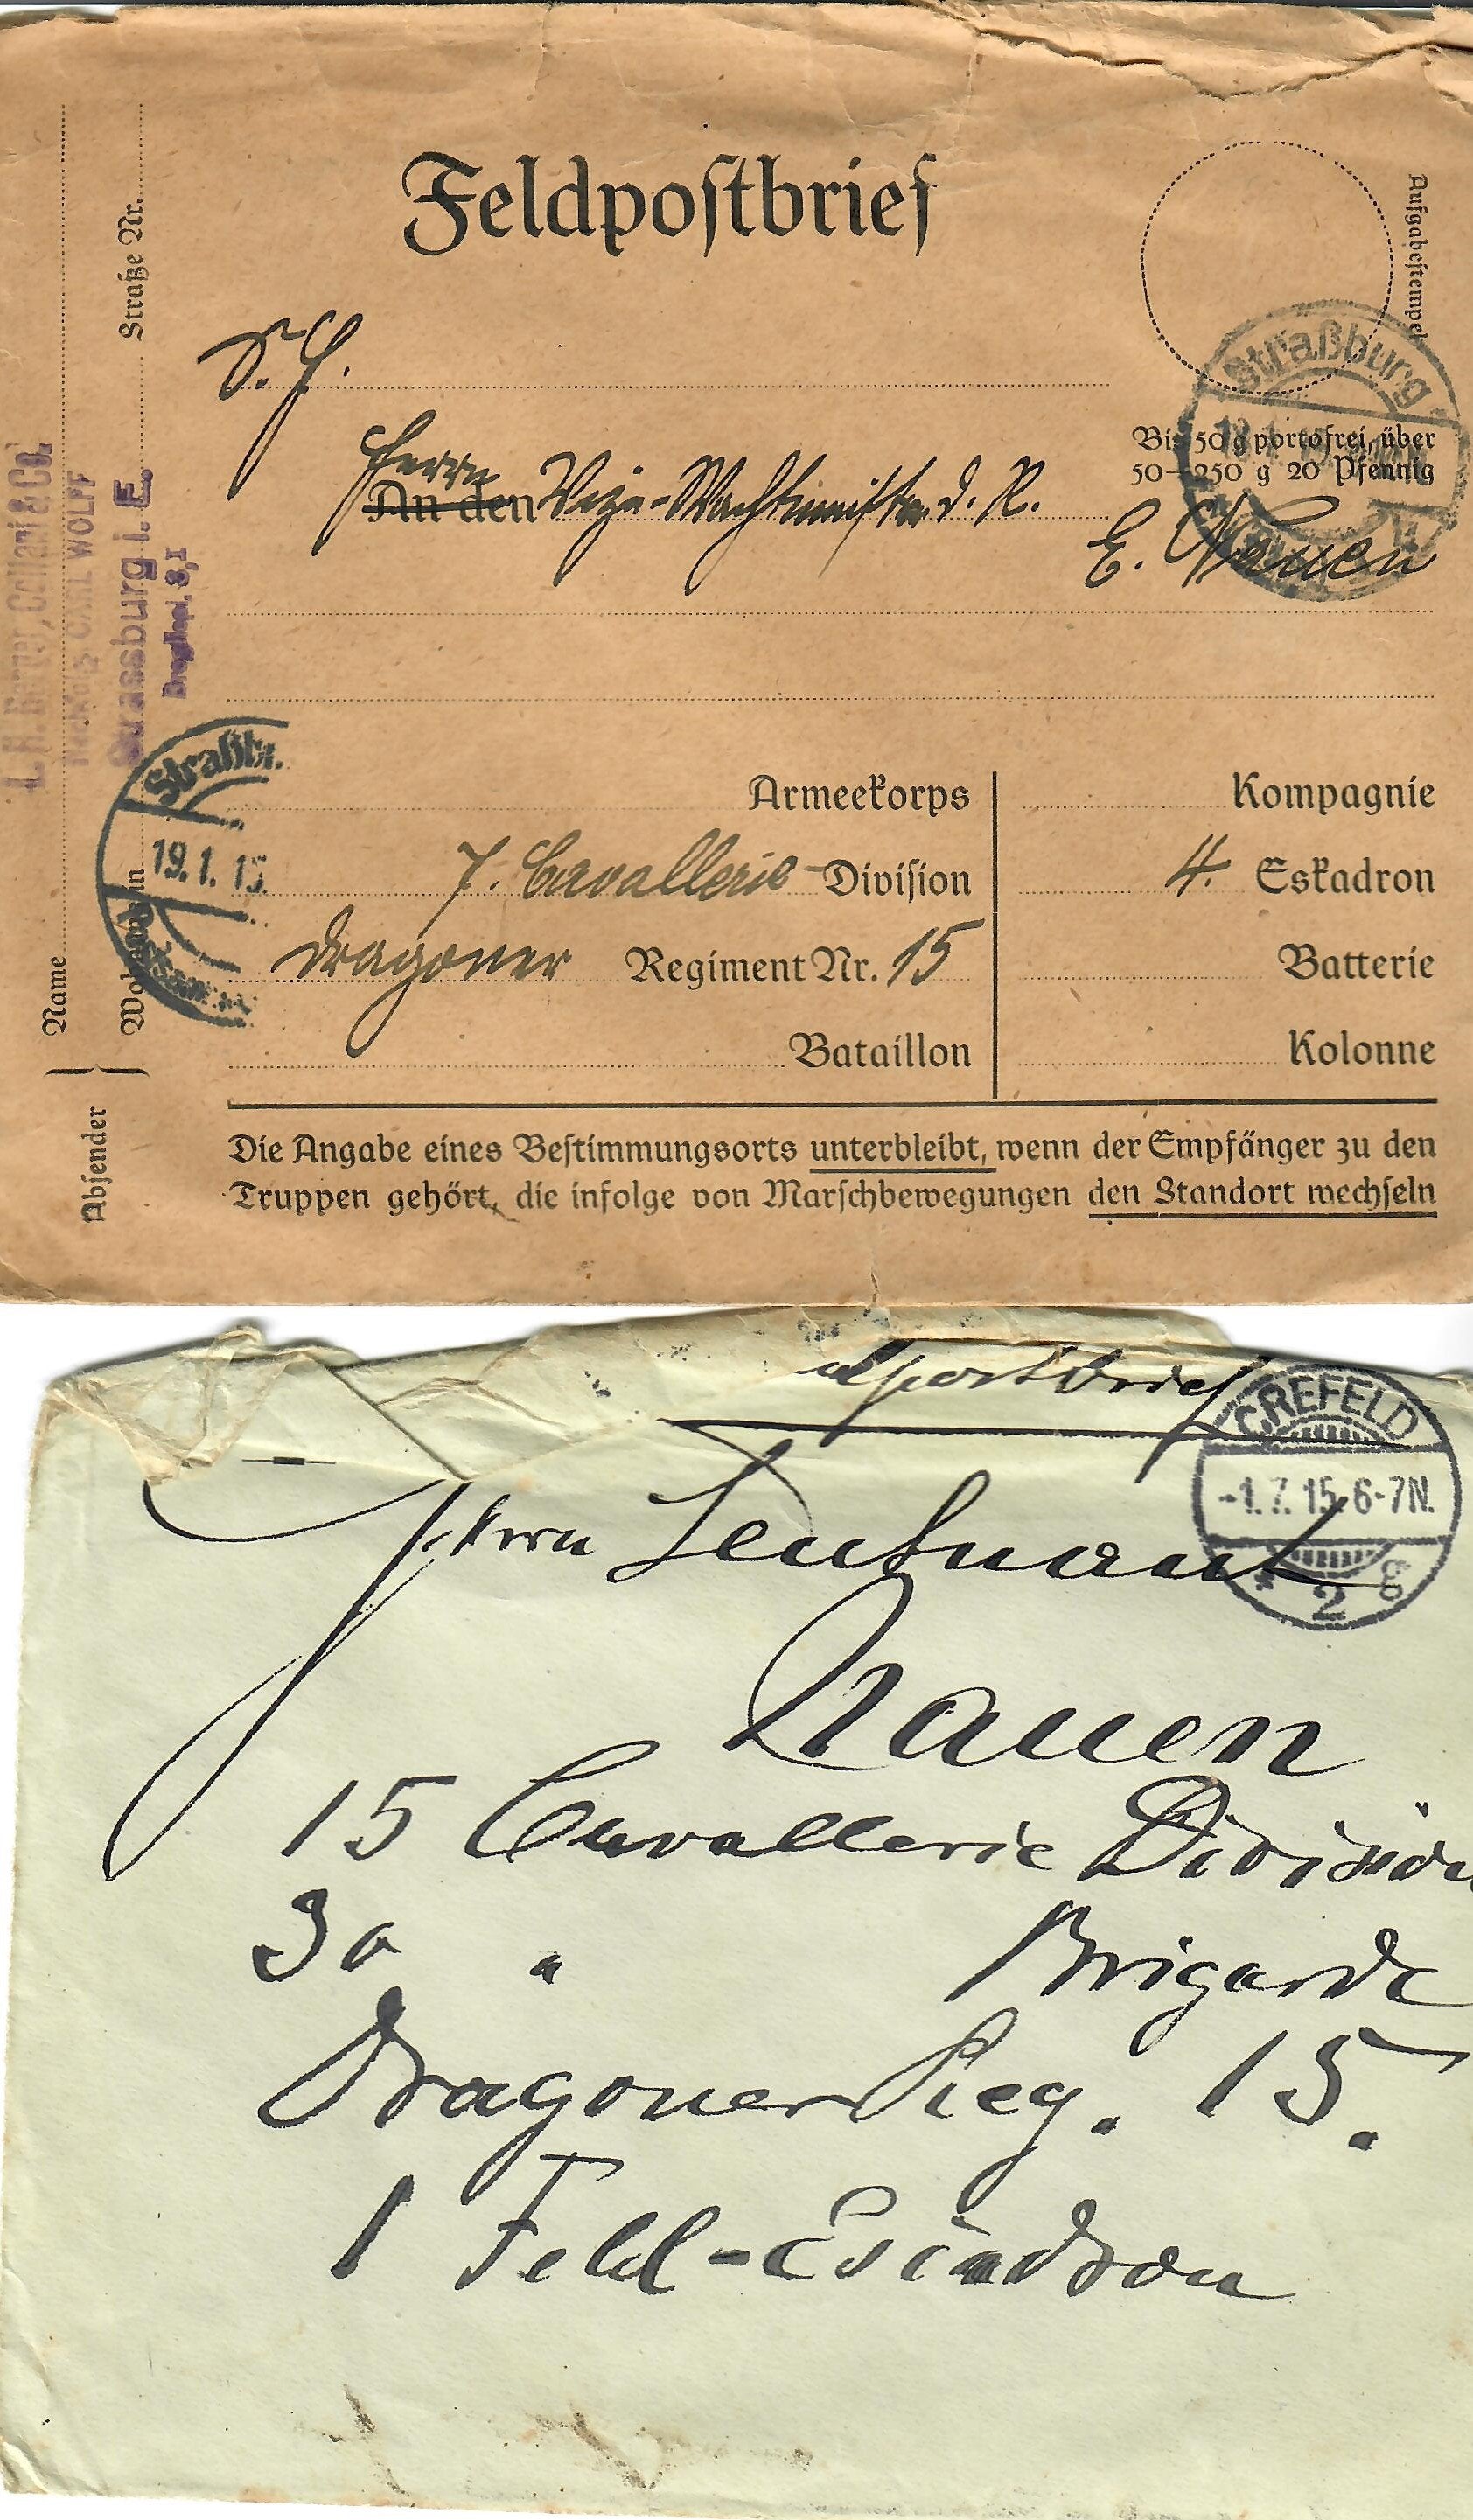 Feldpostbrief
Aufgabestempel
Straßburg
S. H.
Bis 50 g portofrei, über
50—250 g 20 Pfennig
Herrn
An den Vize-Wachtmeister d. R.
E. Nauen
Armeekorps
Kompagnie
7. Cavallerie Division
4. Eskadron
Dragoner Regiment Nr. 15
Batterie
Bataillon
Kolonne
Die Angabe eines Bestimmungsorts unterbleibt, wenn der Empfänger zu den
Truppen gehört, die infolge von Marschbewegungen den Standort wechseln
Absender
Name
Wohnort
Straße Nr.
CARL WOLFF
Strassburg i. E.
Straßb.
19.1.15.
CREFELD
-1.7.15.6-7N.
* 2 g
Herrn Leutnant
Nauen
15 Cavallerie Division
30 " Brigade
Dragoner Reg. 15.
1 Feld-Escadron